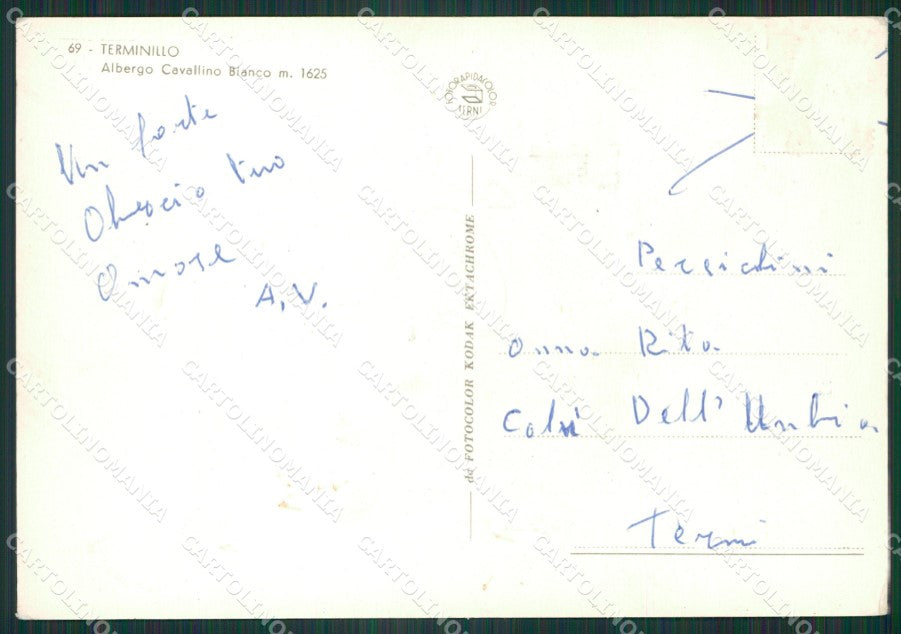 69 - TERMINILLO
Albergo Cavallino Bianco m. 1625
FOTORAPIDACOLOR
TERNI
da FOTOCOLOR KODAK EKTACHROME
Un forte
Amore
A.V.
Persichini
Anna Rita
Dell' Umbria
Terni
CARTOLINOMANIA